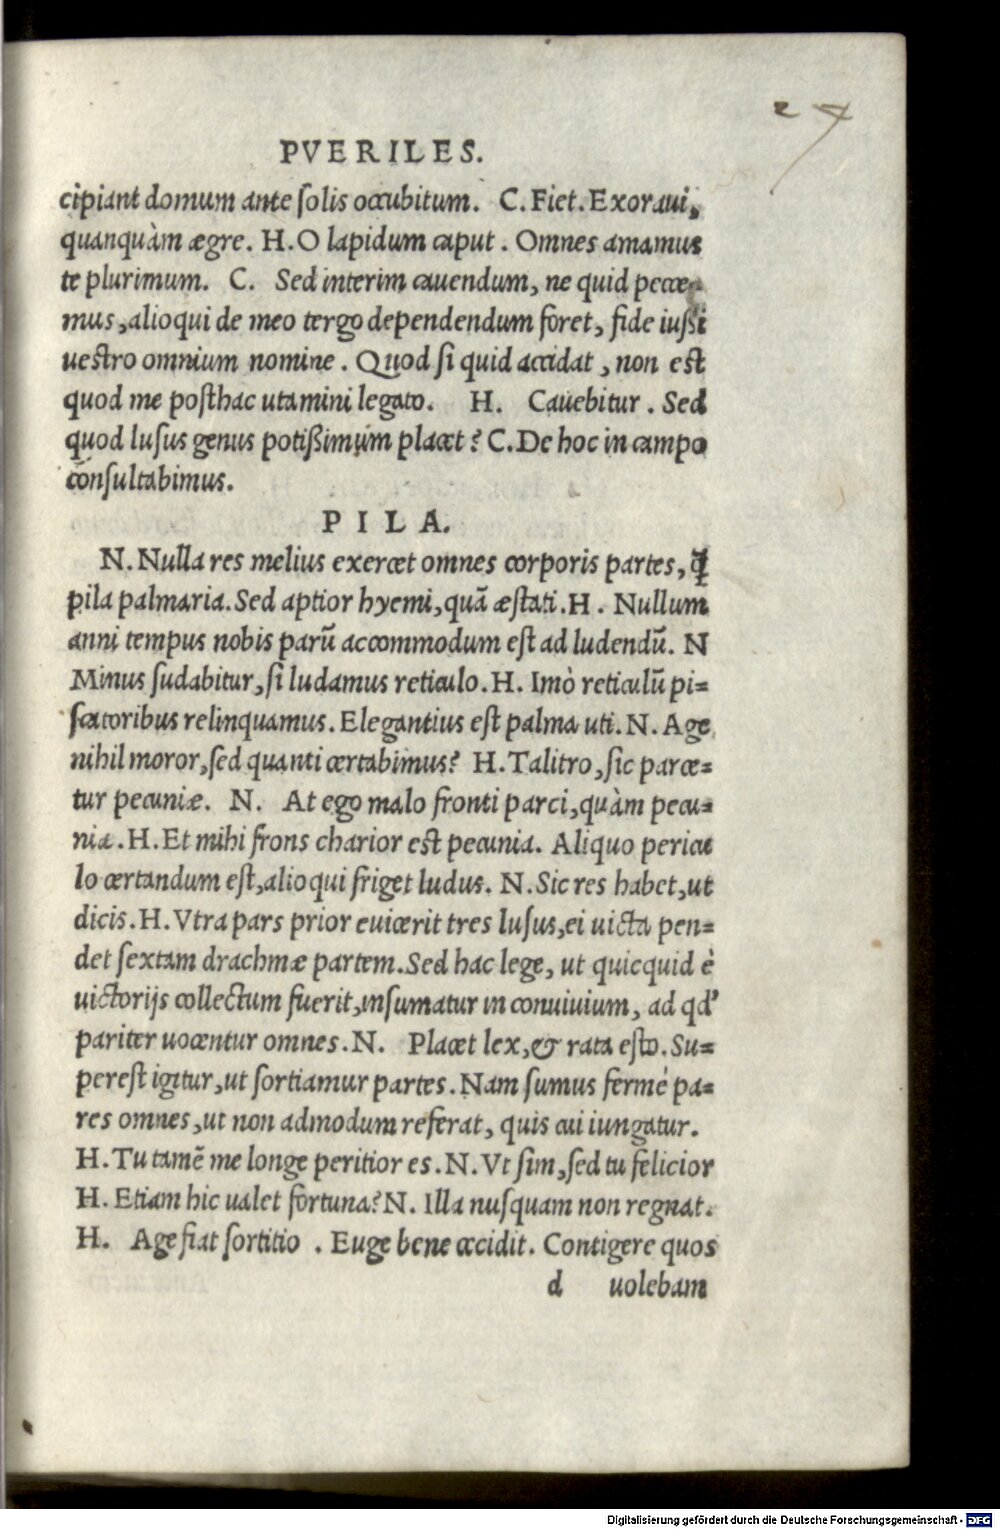 24
PVERILES.
cipiant domum ante solis occubitum. C. Fiet. Exoraui,
quanquàm ægre. H. O lapidum caput. Omnes amamus
te plurimum. C. Sed interim cauendum, ne quid pecce-
mus, alioqui de meo tergo dependendum foret, fide iussi
uestro omnium nomine. Quod si quid accidat, non est
quod me posthac utamini legato. H. Cauebitur. Sed
quod lusus genus potißimùm placet? C. De hoc in campo
consultabimus.
PILA.
N. Nulla res melius exercet omnes corporis partes, q̃
pila palmaria. Sed aptior hyemi, quã æstati. H. Nullum
anni tempus nobis parũ accommodum est ad ludendũ. N
Minus sudabitur, si ludamus reticulo. H. Imò reticulũ pi=
scatoribus relinquamus. Elegantius est palma uti. N. Age
nihil moror, sed quanti certabimus? H. Talitro, sic parce=
tur pecuniæ. N. At ego malo fronti parci, quàm pecu=
niæ. H. Et mihi frons charior est pecunia. Aliquo pericu
lo certandum est, alioqui friget ludus. N. Sic res habet, ut
dicis. H. Vtra pars prior euicerit tres lusus, ei uicta pen=
det sextam drachmæ partem. Sed hac lege, ut quicquid è
uictorijs collectum fuerit, insumatur in conuiuium, ad qd'
pariter uocentur omnes. N. Placet lex, & rata esto. Su=
perest igitur, ut sortiamur partes. Nam sumus fermè pa=
res omnes, ut non admodum referat, quis cui iungatur.
H. Tu tamẽ me longe peritior es. N. Vt sim, sed tu felicior
H. Etiam hic ualet fortuna? N. Illa nusquam non regnat.
H. Age fiat sortitio. Euge bene cecidit. Contigere quos
d uolebam
Digitalisierung gefördert durch die Deutsche Forschungsgemeinschaft - DFG